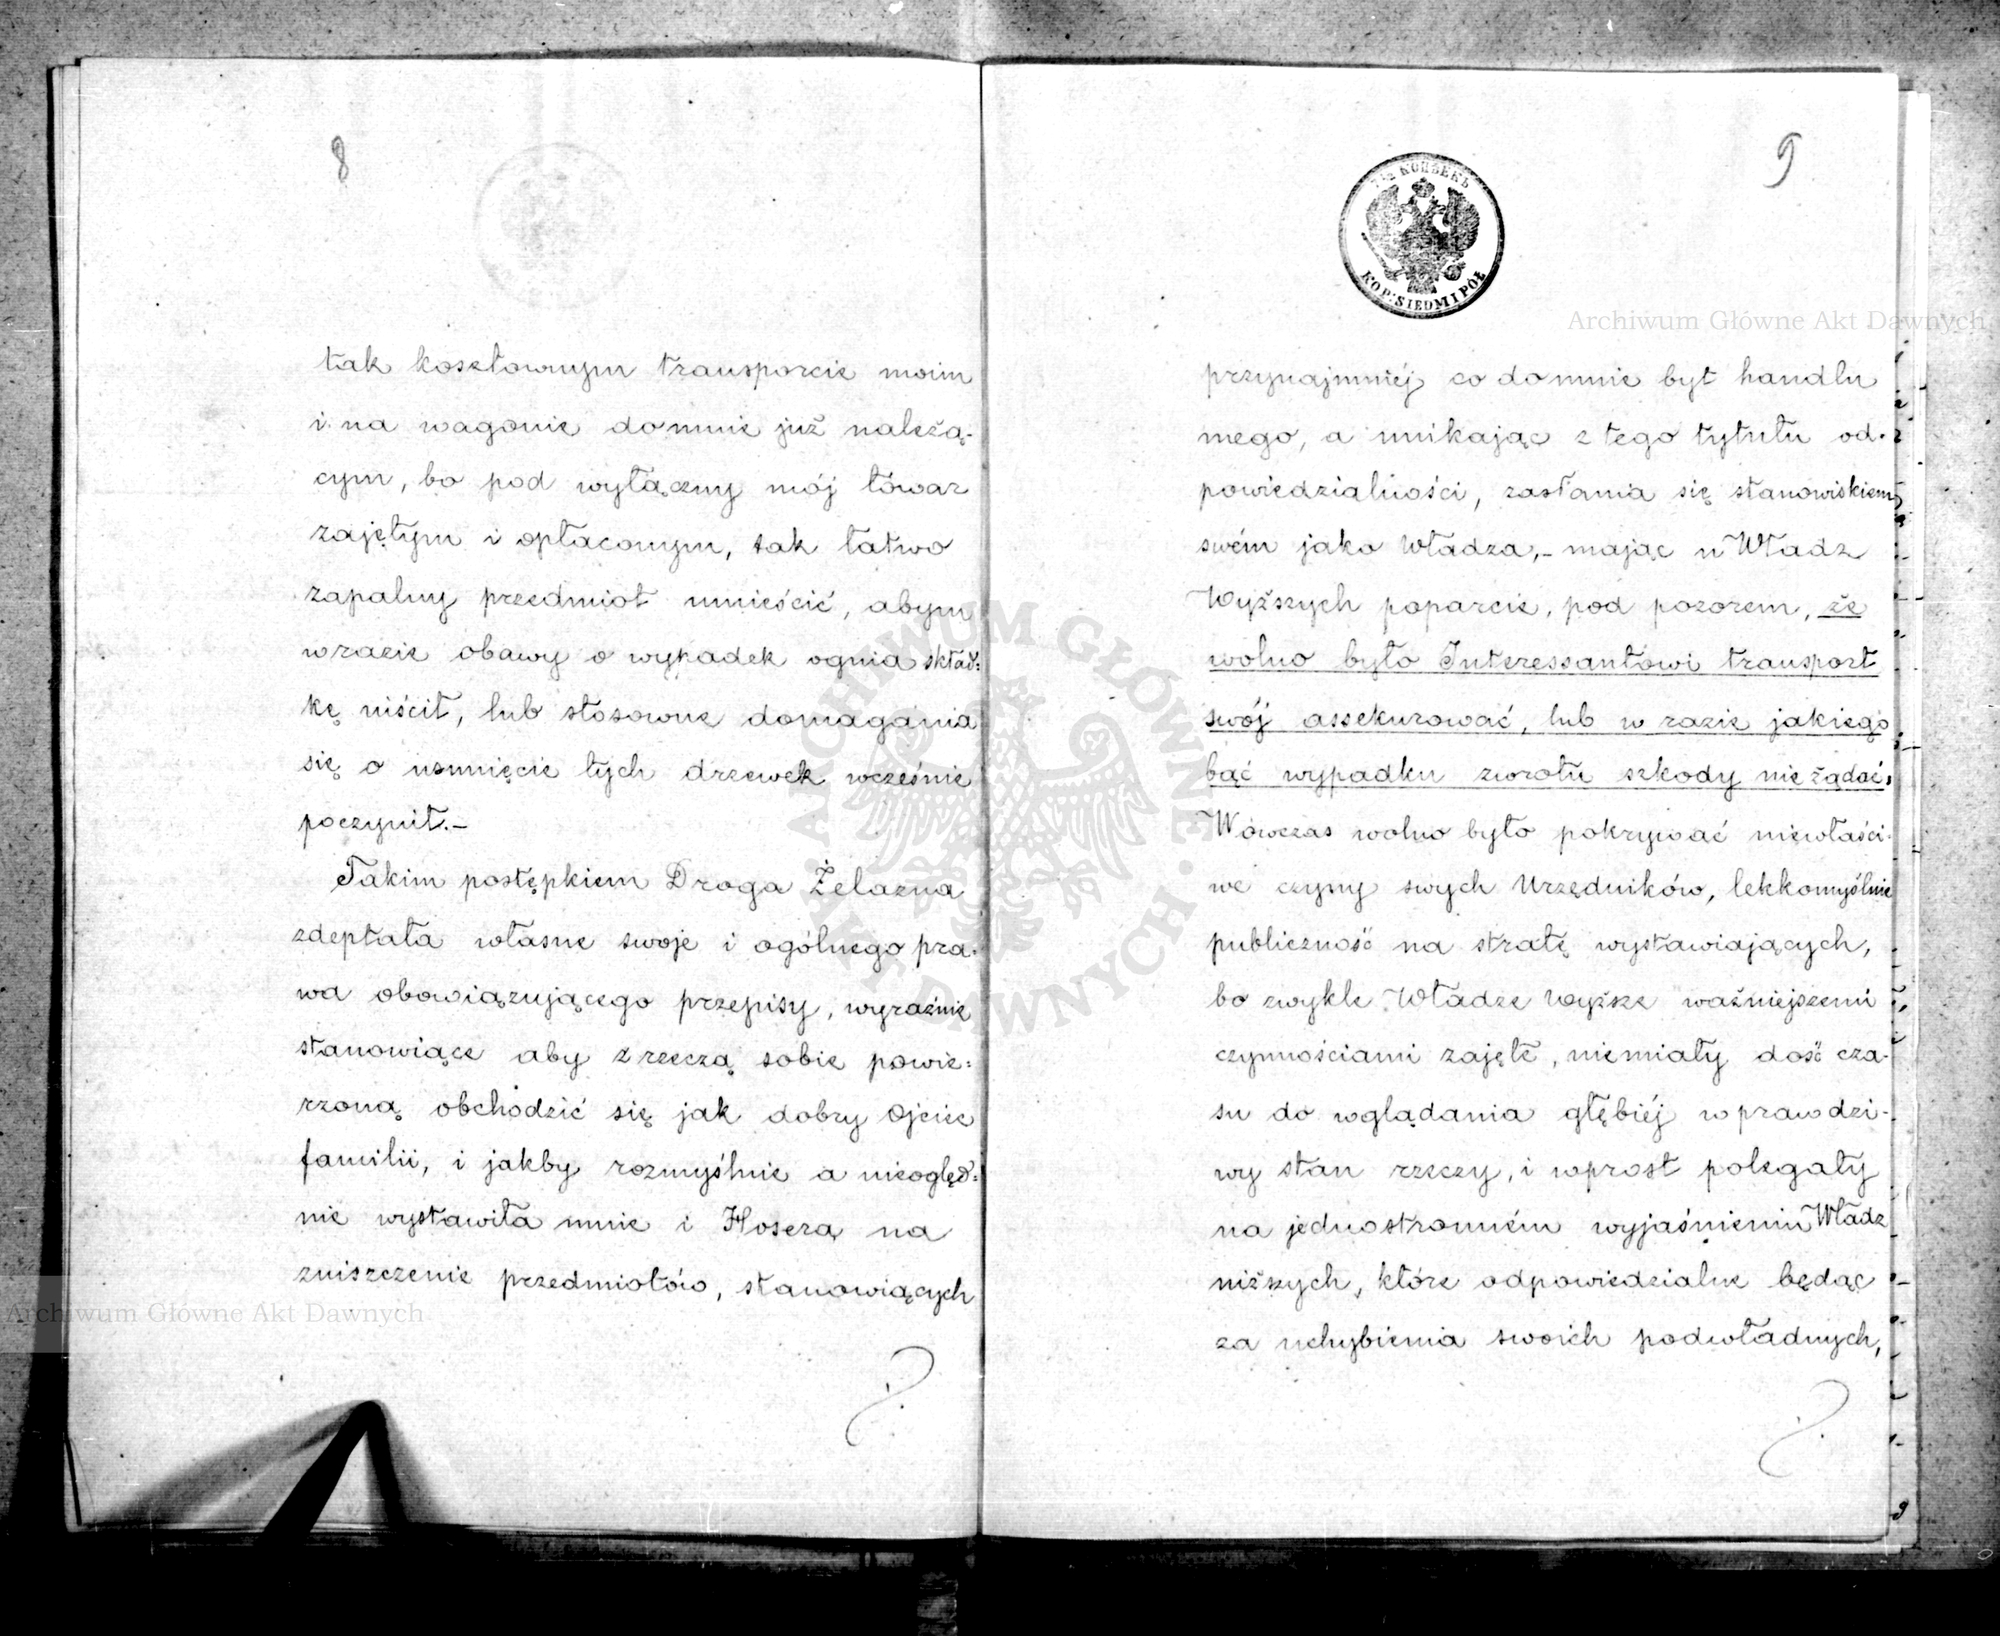 8
tak kosztownym transporcie moim
i na wagonie do mnie już należą-
cym, bo pod wyłączny mój towar
zajętym i opłaconym, tak łatwo
zapalny przedmiot umieścić, abym
w razie obawy o wypadek ognia skład:
kę uiścił, lub stosowne domagania
się o usunięcie tych drzewek wcześnie
poczynił.–
Takim postępkiem Droga Żelazna
zdeptała własne swoje i ogólnego pra:
wa obowiązującego przepisy, wyraźnie
stanowiące aby z rzeczą sobie powie:
rzoną obchodzić się jak dobry Ojciec
familii, i jakby rozmyślnie a nieoględ:
nie wystawiła mnie i Hosera na
zniszczenie przedmiotów, stanowiących
9
7½ КОПѢЕКЪ
KOP: SIEDM I PÓŁ
przynajmniéj co do mnie byt handlu
mego, a unikając z tego tytułu od-
powiedzialności, zasłania się stanowiskiem
swém jako Władza,– mając u Władz
Wyższych poparcie, pod pozorem, że
wolno było Interessantowi transport
swój assekurować, lub w razie jakiego
bąć wypadku zwrotu szkody nie żądać.
Wówczas wolno było pokrywać niewłaści-
we czyny swych Urzędników, lekkomyślnie
publiczność na stratę wystawiających,
bo zwykle Władze wyższe ważniejszemi
czynnościami zajęte, nie miały dość cza-
su do wglądania głębiéj w prawdzi-
wy stan rzeczy, i wprost polegały
na jednostronném wyjaśnieniu Władz
niższych, które odpowiedzialne będąc
za uchybienia swoich podwładnych,
Archiwum Główne Akt Dawnych
Archiwum Główne Akt Dawnych
ARCHIWUM GŁÓWNE AKT DAWNYCH